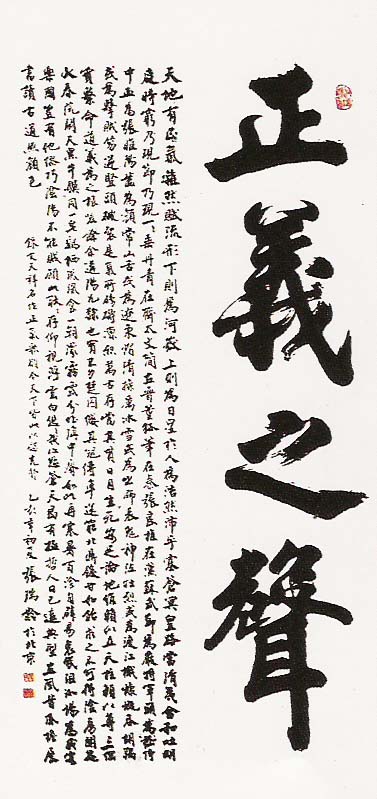 正義之聲
天地有正氣雜然賦流形下則為河嶽上則為日星於人為浩然沛乎塞蒼冥皇路當清夷含和吐明
庭時窮節乃現一一垂丹青在齊太史簡在晉董狐筆在秦張良椎在漢蘇武節為嚴將軍頭為嵇侍
中血為張睢陽齒為顏常山舌或為遼東帽清操厲冰雪或為出師表鬼神泣壯烈或為渡江楫慷慨吞胡羯
或為擊賊笏逆豎頭破裂是氣所磅礴凜烈萬古存當其貫日月生死安足論地維賴以立天柱賴以尊三綱
實繫命道義為之根嗟余遘陽九隸也實不力楚囚纓其冠傳車送窮北鼎鑊甘如飴求之不可得陰房闃鬼
火春院閟天黑牛驥同一皂雞棲鳳凰食一朝蒙霧露分作溝中瘠如此再寒暑百沴自辟易哀哉沮洳場為我安
樂國豈有他繆巧陰陽不能賊顧此耿耿存仰視浮雲白悠悠我心悲蒼天曷有極哲人日已遠典型在夙昔風簷展
書讀古道照顏色
錄文天祥名作正氣歌 張瑞齡於北京